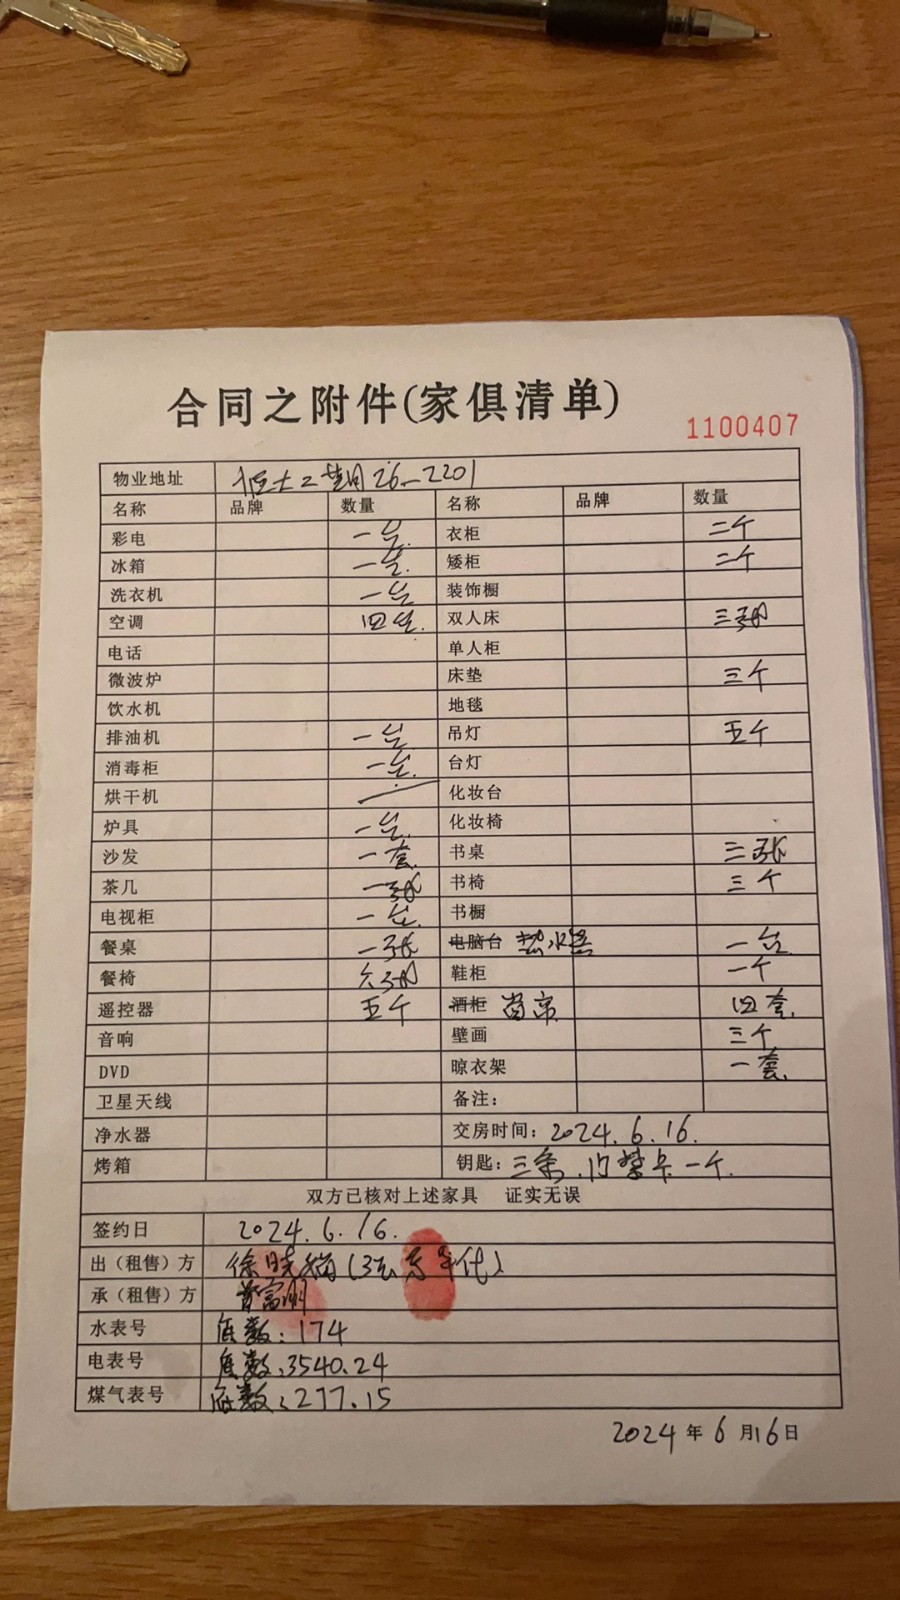 合同之附件(家俱清单)
1100407
物业地址 恒大二期26-2201
名称 品牌 数量 名称 品牌 数量
彩电 一台 衣柜 二个
冰箱 一台. 矮柜 二个
洗衣机 一台 装饰橱
空调 四台. 双人床 三张
电话 单人柜
微波炉 床垫 三个
饮水机 地毯
排油机 一台 吊灯 五个
消毒柜 一台. 台灯
烘干机 化妆台
炉具 一台. 化妆椅
沙发 一套. 书桌 三张
茶几 一张 书椅 三个
电视柜 一台. 书橱
餐桌 一张 电脑台 热水器 一台
餐椅 六张 鞋柜 一个
遥控器 五个 酒柜 窗帘 四套
音响 壁画 三个
DVD 晾衣架 一套.
卫星天线 备注:
净水器 交房时间: 2024.6.16.
烤箱 钥匙: 三条.门禁卡一个.
双方已核对上述家具 证实无误
签约日 2024.6.16.
出(租售)方 徐晓 代)
承(租售)方 富明
水表号 底数: 174
电表号 底数:3540.24
煤气表号 底数:277.15
2024年6月16日